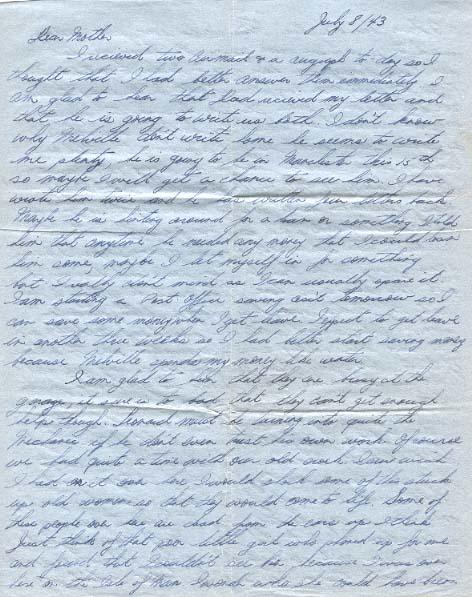 July 8/43
Dear Mother
I recieved two Airmail & a augraph to day so I
thought that I had better answer them immediately I
am glad to hear that had recieved my letter and
that he is going to write us both. I don't know
why Melville don't write home he seems to write
me plenty, he is going to be in Manchester this 15th
so maybe I will get a chance to see him. I have
wrote him twice and he has written letters back
Maybe he is hinting around for a loan or something I told
him that anytime he needed any money that I could loan
him some, maybe I let myself in for something
but I really don't mind as I can usually spare it.
I am starting a Post Office saving acct tomorrow so I
can save some money when I get leave. I expect to get leave
in another three weeks so I had better start saving money
because Melville spends my money like water
I am glad to hear that they are busy at the
garage, it sure is to bad that they can't get enough
help though. Leonard must be turning into quite the
Mechanic if he don't even trust his own work. Of course
we had quite a time with our old I sure wish
I had it over here I would some of this stuck
up old women so that they would come to life. Some of
these people over here are from the ears up I think
Just think of that poor little girl who up for me
and found that I couldn't see her because I was over
here on the Isle of Man I wonder who she could have been